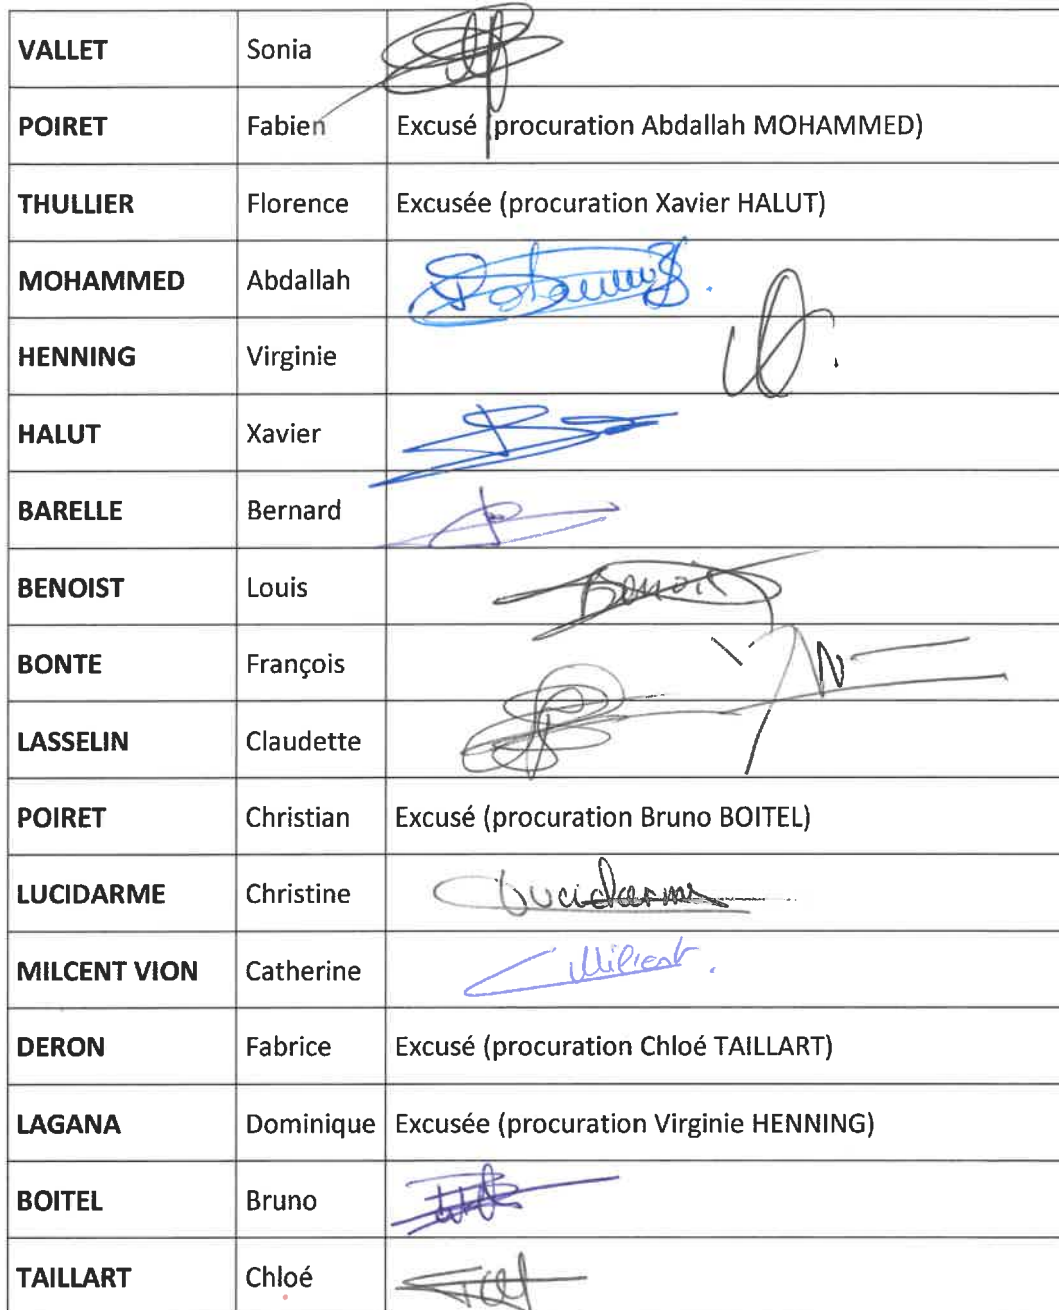 VALLET Sonia
POIRET Fabien Excusé (procuration Abdallah MOHAMMED)
THULLIER Florence Excusée (procuration Xavier HALUT)
MOHAMMED Abdallah
HENNING Virginie
HALUT Xavier
BARELLE Bernard
BENOIST Louis Benoist
BONTE François
LASSELIN Claudette
POIRET Christian Excusé (procuration Bruno BOITEL)
LUCIDARME Christine Lucidarme
MILCENT VION Catherine Milcent
DERON Fabrice Excusé (procuration Chloé TAILLART)
LAGANA Dominique Excusée (procuration Virginie HENNING)
BOITEL Bruno
TAILLART Chloé